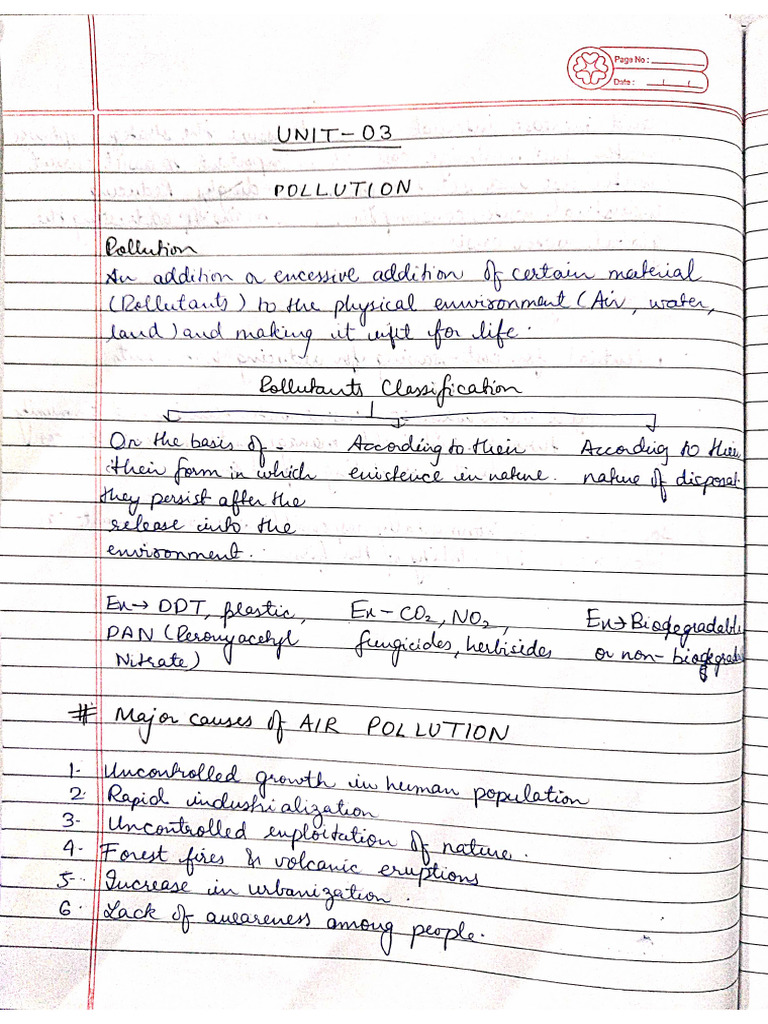 Page No :
Date :
UNIT-03
POLLUTION
Pollution
An addition or excessive addition of certain material
(Pollutants) to the physical environment (Air, water,
land) and making it unfit for life.
Pollutants Classification
On the basis of -
their form in which
they persist after the
release into the
environment.
According to their
existence in nature.
According to their
nature of disposal.
Ex→ DDT, plastic,
PAN (Peroxyacetyl
Nitrate)
Ex- CO2, NO2,
fungicides, herbisides
Ex→ Biodegradable
or non-biodegradable
# Major causes of AIR POLLUTION
1. Uncontrolled growth in human population
2. Rapid industrialization
3. Uncontrolled exploitation of nature.
4. Forest fires & volcanic eruptions
5. Increase in urbanization.
6. Lack of awareness among people.